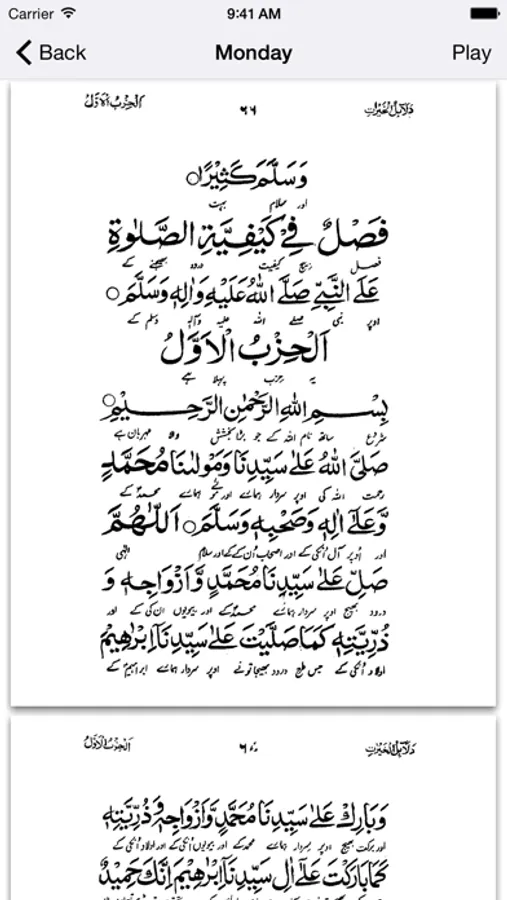 Carrier 9:41 AM
Back Monday Play
دلائل الخیرات ٦٦ اَلْحِزْبُ الْاَوَّلُ
وَسَلَّمَ كَثِيْرًا○
اور سلام بہت
فَصْلٌ فِيْ كَيْفِيَّةِ الصَّلٰوةِ
فصل بیچ کیفیت درود بھیجنے کے
عَلَى النَّبِيِّ صَلَّى اللّٰهُ عَلَيْهِ وَاٰلِهٖ وَسَلَّمَ○
اوپر نبی صلے اللہ علیہ وآلہ وسلم کے
اَلْحِزْبُ الْاَوَّلُ
یہ حزب پہلا ہے
بِسْمِ اللّٰهِ الرَّحْمٰنِ الرَّحِيْمِ○
شروع ساتھ نام اللہ کے جو بڑا بخشش والا مہربان ہے
صَلَّى اللّٰهُ عَلٰى سَيِّدِنَا وَمَوْلٰىنَا مُحَمَّدٍ
رحمت اللہ کی اوپر سردار ہمارے اور ہمارے محمدؐ کے
وَّعَلٰٓى اٰلِهٖ وَصَحْبِهٖ وَسَلَّمَ○ اَللّٰهُمَّ
اور اوپر آل انکی کے اور اصحاب اُن کے کے اور سلام الٰہی
صَلِّ عَلٰى سَيِّدِنَا مُحَمَّدٍ وَّاَزْوَاجِهٖ وَ
درود بھیج اوپر سردار ہمارے محمدؐ کے اور بیویوں ان کی کے اور
ذُرِّيَّتِهٖ كَمَا صَلَّيْتَ عَلٰى سَيِّدِنَا اِبْرٰهِيْمَ
اولاد اُنکی کے جس طرح درود بھیجا تونے اوپر سردار ہمارے ابراہیمؑ کے
دلائل الخیرات اَلْحِزْبُ الْاَوَّلُ
وَبَارِكْ عَلٰى سَيِّدِنَا مُحَمَّدٍ وَّاَزْوَاجِهٖ وَذُرِّيَّتِهٖ
اور برکت بھیج اوپر سردار ہمارے محمدؐ کے اور بیویوں اُنکی کے اور اولاد اُنکی کے
كَمَا بَارَكْتَ عَلٰٓى اٰلِ سَيِّدِنَا اِبْرٰهِيْمَ اِنَّكَ حَمِيْدٌ